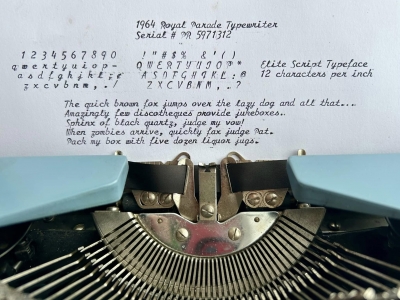 1964 Royal Parade Typewriter
Serial # PR 5971312
1 2 3 4 5 6 7 8 9 0 ! " # $ % & ' ( )
q w e r t y u i o p - Q W E R T Y U I O P * Elite Script Typeface
a s d f g h j k l ; A S D F G H J K L : @ 12 characters per inch
z x c v b n m , . / Z X C V B N M , . ?
The quick brown fox jumps over the lazy dog and all that....
Amazingly few discotheques provide jukeboxes..
Sphinx of black quartz, judge my vow!
When zombies arrive, quickly fax judge Pat.
Pack my box with five dozen liquor jugs.